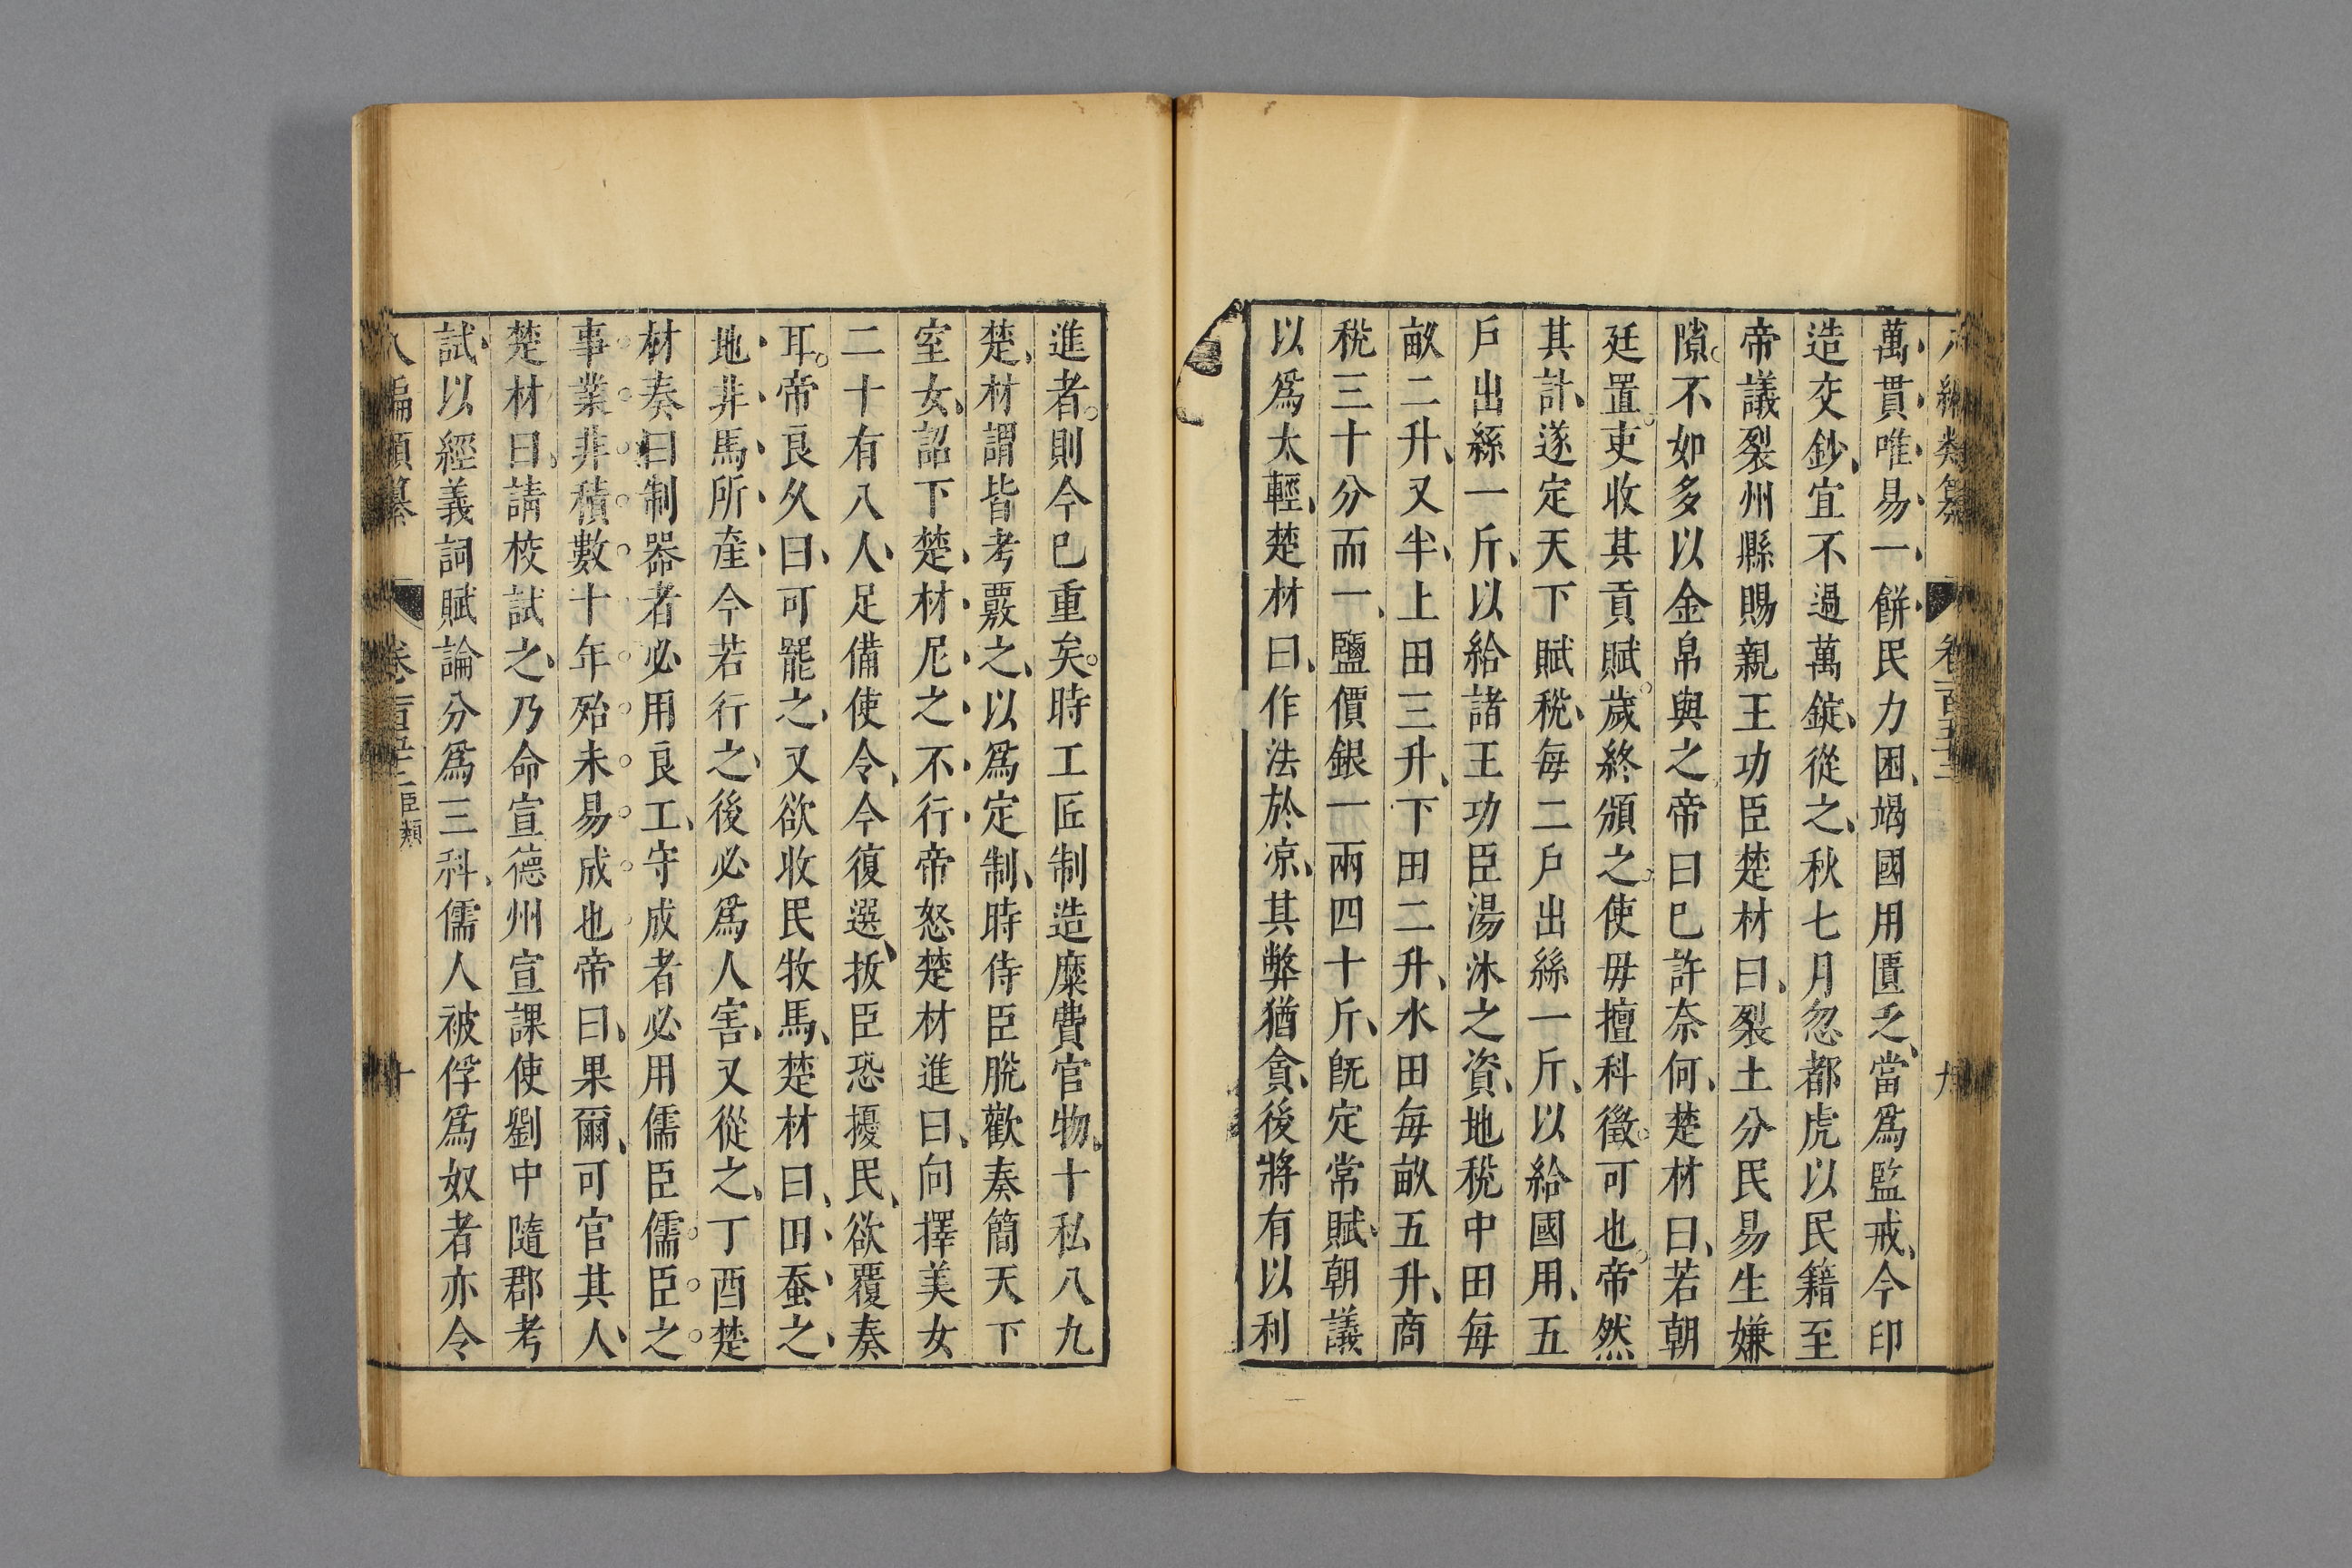 萬貫唯易一餅民力困竭國用匱乏當爲監戒今印
造交鈔宜不過萬錠從之秋七月忽都虎以民籍至
帝議裂州縣賜親王功臣楚材曰裂土分民易生嫌
隙不如多以金帛與之帝曰已許奈何楚材曰若朝
廷置吏收其貢賦歲終頒之使毋擅科徵可也帝然
其計遂定天下賦稅每二戶出絲一斤以給國用五
戶出絲一斤以給諸王功臣湯沐之資地稅中田每
畝二升又半上田三升下田二升水田每畝五升商
稅三十分而一鹽價銀一兩四十斤旣定常賦朝議
以爲太輕楚材曰作法於凉其弊猶貪後將有以利
進者則今已重矣時工匠制造糜費官物十私八九
楚材謂皆考覈之以爲定制時侍臣脫歡奏簡天下
室女詔下楚材尼之不行帝怒楚材進曰向擇美女
二十有八人足備使令今復選拔臣恐擾民欲覆奏
耳帝良久曰可罷之又欲收民牧馬楚材曰田蚕之
地非馬所產今若行之後必爲人害又從之丁酉楚
材奏曰制器者必用良工守成者必用儒臣儒臣之
事業非積數十年殆未易成也帝曰果爾可官其人
楚材曰請校試之乃命宣德州宣課使劉中隨郡考
試以經義詞賦論分爲三科儒人被俘爲奴者亦令
八編類纂 卷一百五十二 臣類 十